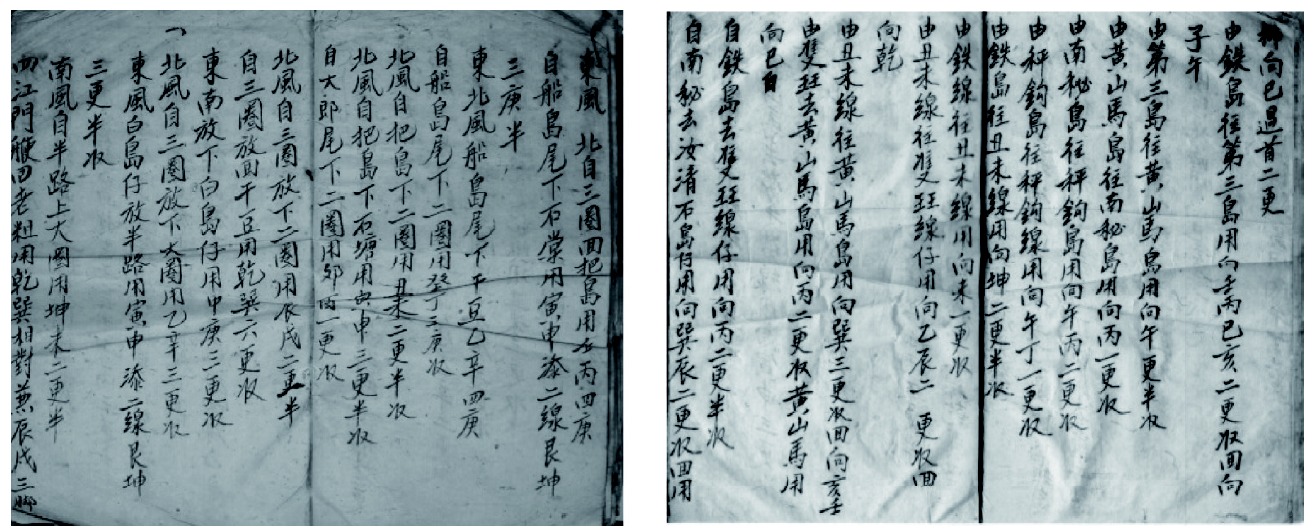 向巳過首二更
由鉄島往第三島用向壬丙巳亥二更収回向
子午
由第三島往黄山馬島用向午更半収
由黄山馬島往南秘島用向丙一更収
由南秘島往秤鉤島用向午丙二更收
由秤鉤島往秤鉤線用向午丁一更収
由鉄島往丑未線用向坤二更半收
由鉄線往丑未線用向未一更收
由丑未線往雙玨線仔用向乙辰二更収回
向乾
由丑未線往黄山馬島用向巽三更収回向亥壬
由雙玨去黄山馬島用向丙二更収黄山馬用
向巳自
自鉄島去雙玨線仔用向丙二更半收
自南秘去汝清石島仔用向巽辰二更収回用
東風 北自三圈回把島用丙四庚
自船島尾下石棠用寅申添二線艮坤
三庚半
東北風船島尾下干豆乙辛四庚
自船島尾下二圈用癸丁三庚收
北風自把島下二圈用丑未二更半收
北風自把島下石塘用申三更半收
自大郎尾下二圈用一更收
北風自三圈放下二圈用辰戌二更半
自三圈放回干豆用乾巽六更收
東南放下白島仔用甲庚三更收
北風自三圈放下大圈用乙辛三更收
東風白島仔放半路用寅申添二線艮坤
三更半收
南風自半路上大圈用坤未二更半
江門回老粗用乾巽相對兼辰戌三